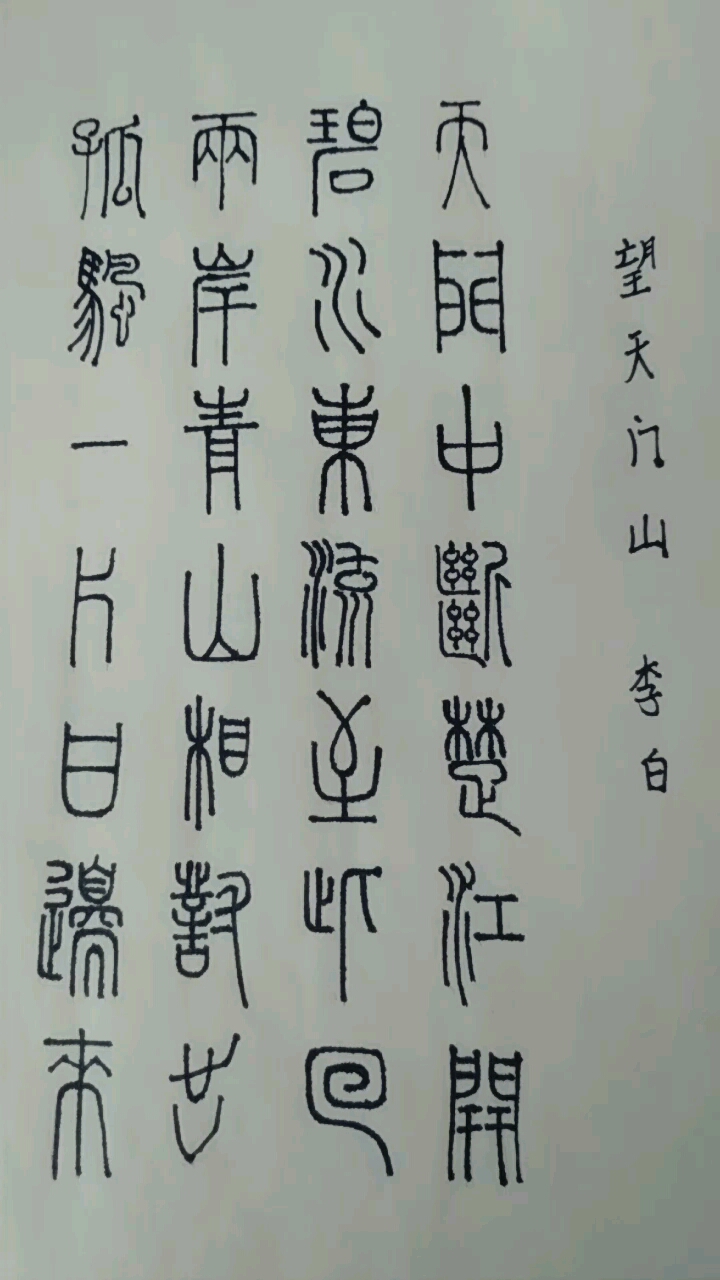 望天门山 李白
天門中斷楚江開
碧水東流至此回
兩岸青山相對出
孤颿一片日邊來